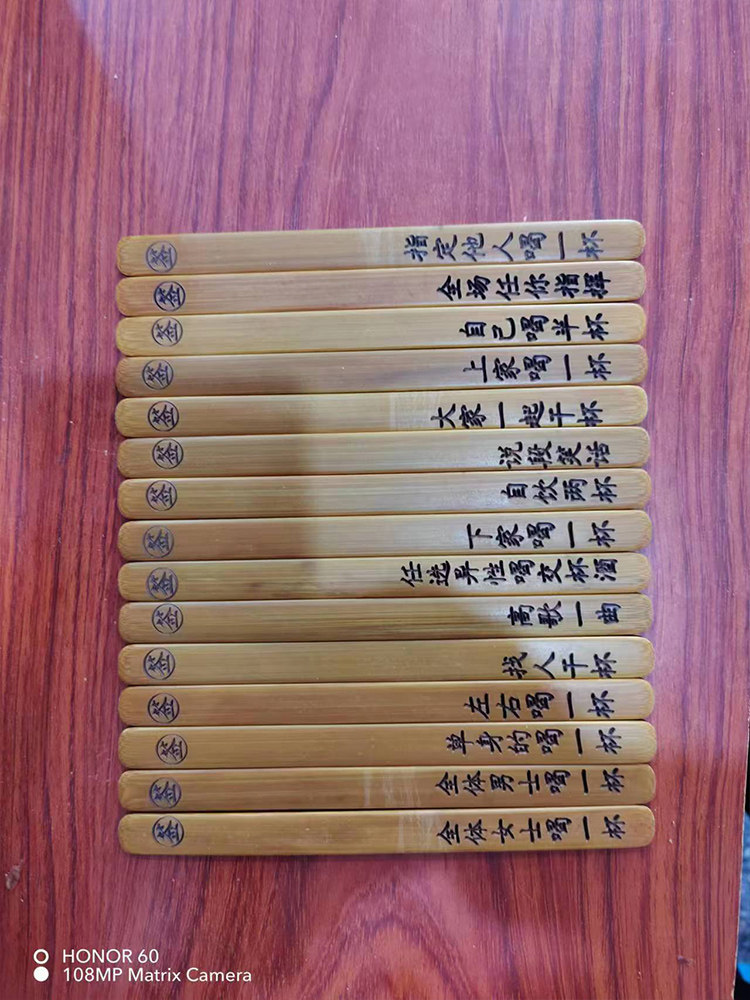 签 指定他人喝一杯
签 全场任你指挥
签 自己喝半杯
签 上家喝一杯
签 大家一起干杯
签 说段笑话
签 自饮两杯
签 下家喝一杯
签 任选异性喝交杯酒
签 高歌一曲
签 找人干杯
签 左右喝一杯
签 单身的喝一杯
签 全体男士喝一杯
签 全体女士喝一杯
HONOR 60
108MP Matrix Camera